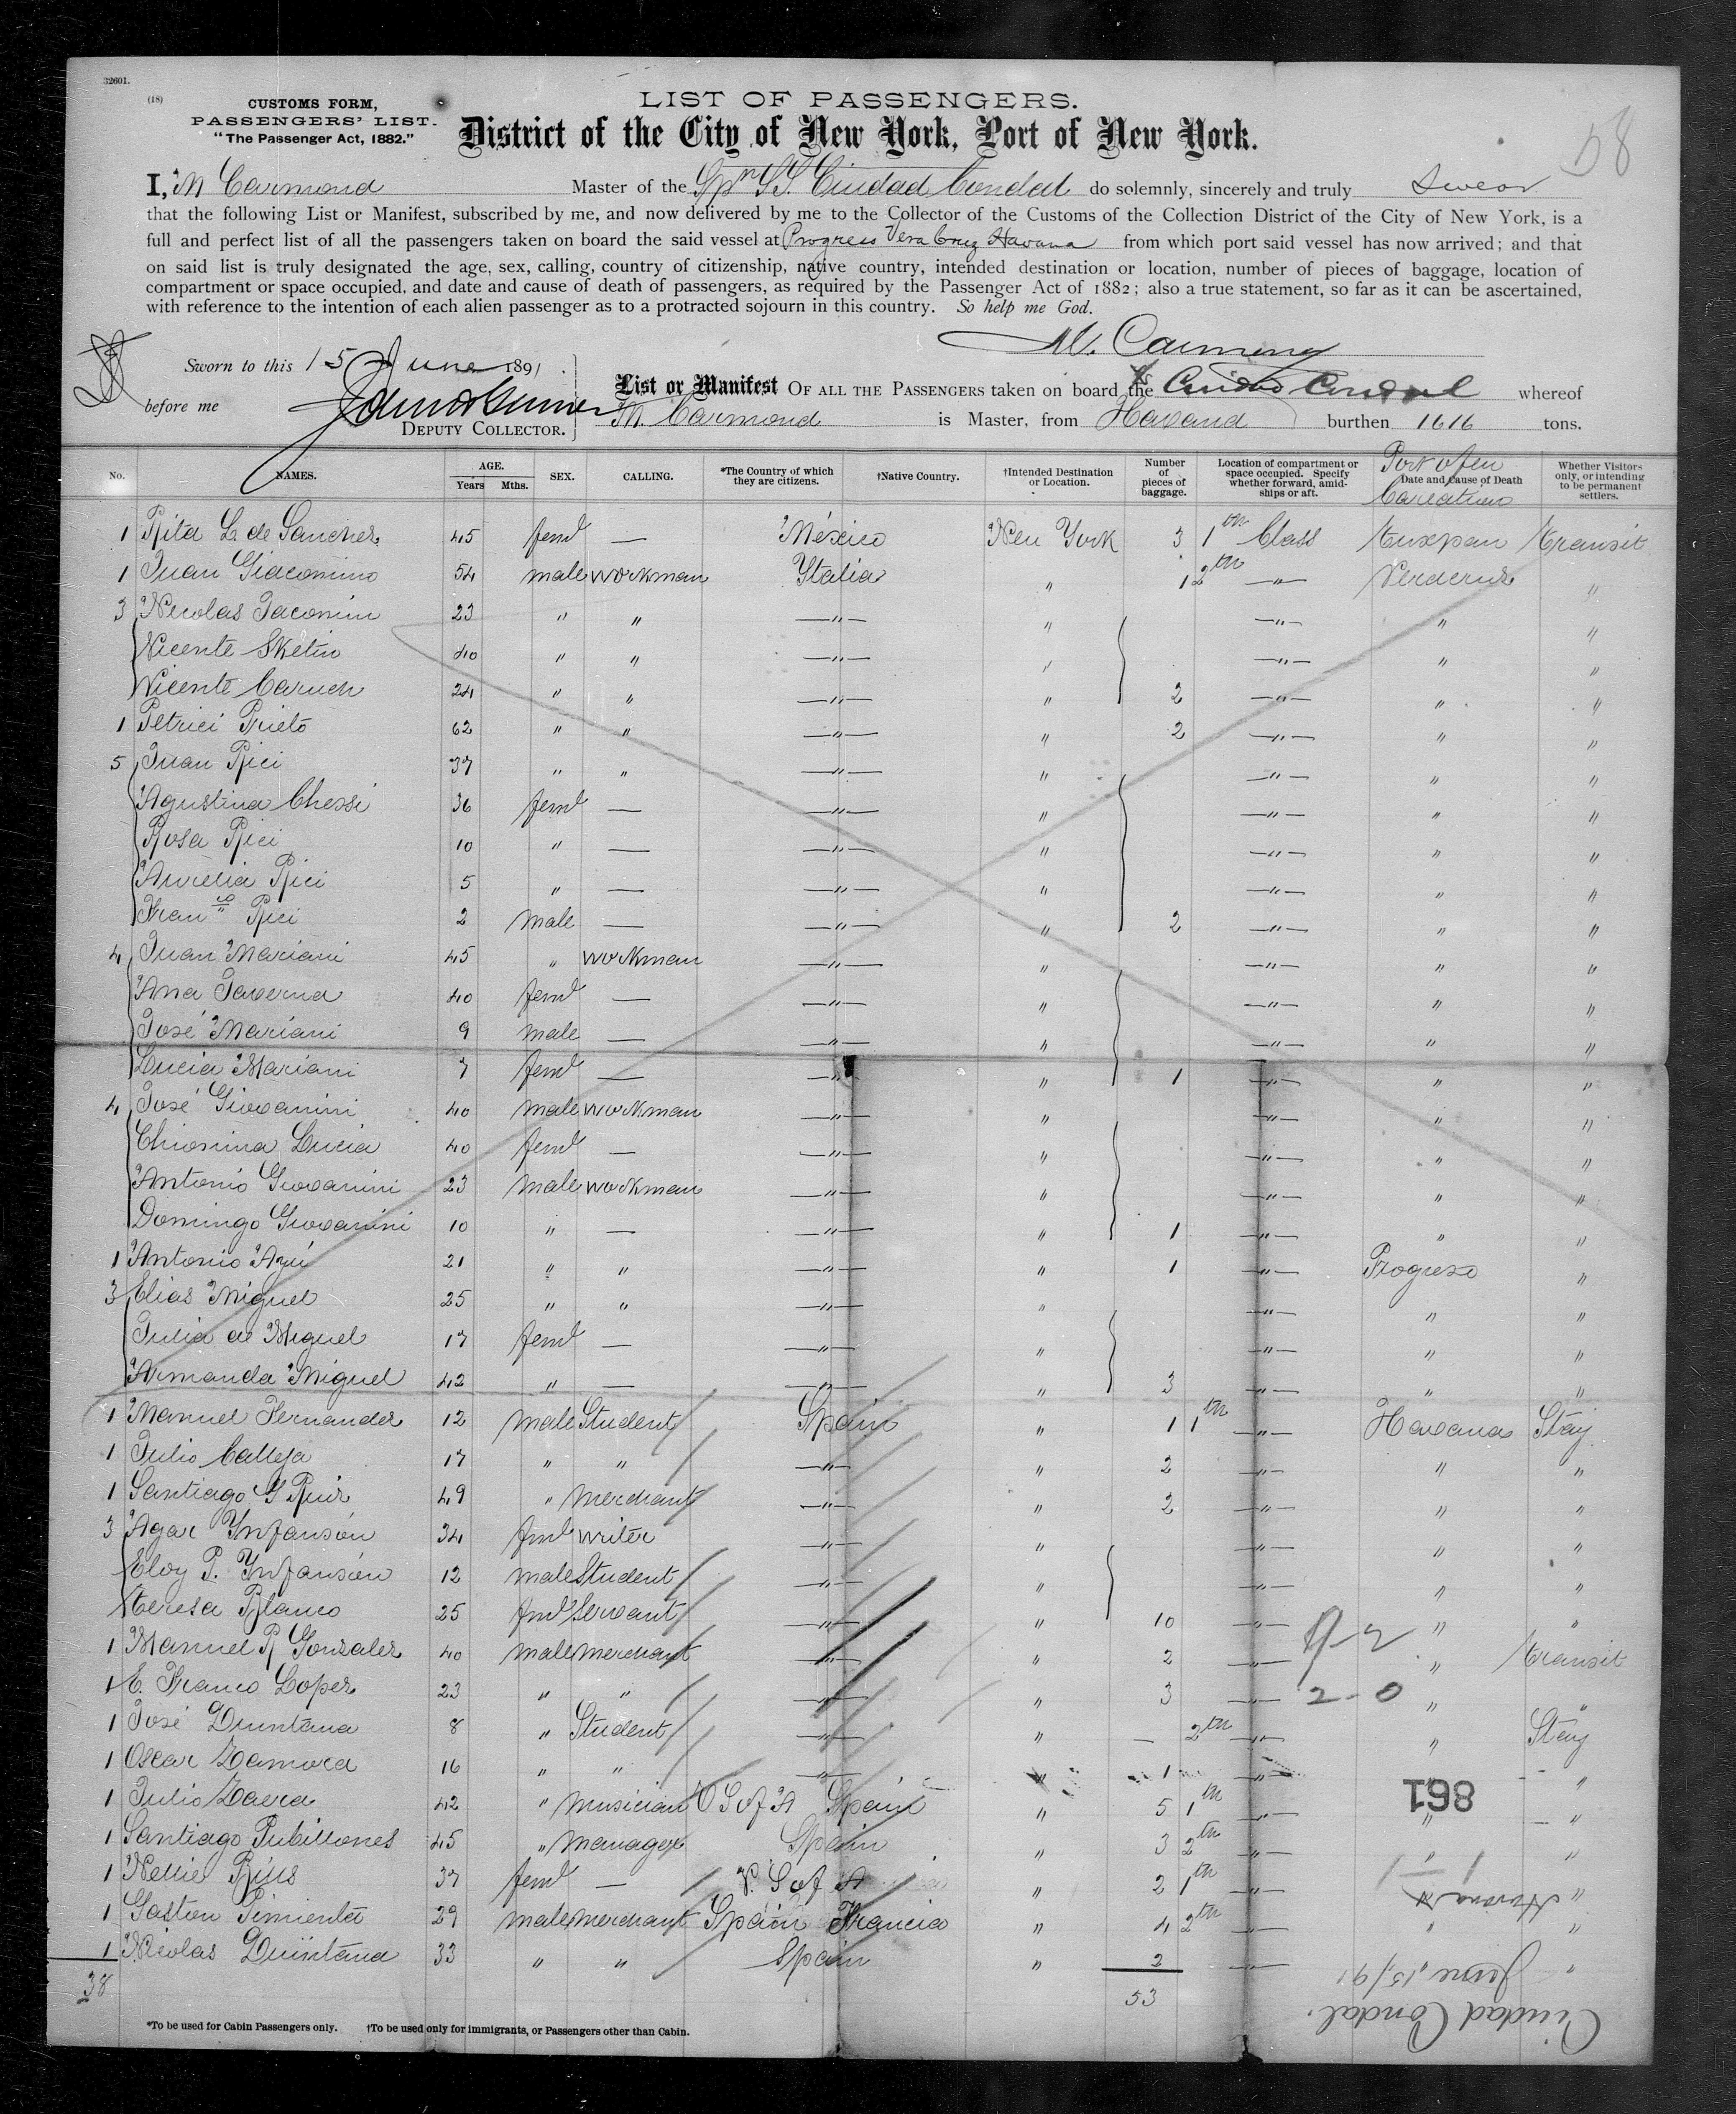 32601.
(18)
CUSTOMS FORM,
PASSENGERS' LIST.
"The Passenger Act, 1882."
LIST OF PASSENGERS.
District of the City of New York, Port of New York.
58
I, M Carmona Master of the Spn SS. Ciudad Condal do solemnly, sincerely and truly swear
that the following List or Manifest, subscribed by me, and now delivered by me to the Collector of the Customs of the Collection District of the City of New York, is a
full and perfect list of all the passengers taken on board the said vessel at Progreso Vera Cruz Havana from which port said vessel has now arrived; and that
on said list is truly designated the age, sex, calling, country of citizenship, native country, intended destination or location, number of pieces of baggage, location of
compartment or space occupied, and date and cause of death of passengers, as required by the Passenger Act of 1882; also a true statement, so far as it can be ascertained,
with reference to the intention of each alien passenger as to a protracted sojourn in this country. So help me God.
M. Carmona
Sworn to this 15 June 1891.
before me
DEPUTY COLLECTOR.
List or Manifest OF ALL THE PASSENGERS taken on board the Ciudad Condal whereof
M. Carmona is Master, from Havana burthen 1616 tons.
No. NAMES. AGE. Years Mths. SEX. CALLING. *The Country of which they are citizens. †Native Country. †Intended Destination or Location. Number of pieces of baggage. Location of compartment or space occupied. Specify whether forward, amidships or aft. Date and Cause of Death Port of em barcation Whether Visitors only, or intending to be permanent settlers.
1 Rita L. de Sanchez 45 feml — México New York 3 1th Class Tuxpan transit
1 Juan Giacomino 54 male workman Ytalia " 1 2th —"— Veracruz "
3 Nicolas Jacomin 23 " " —"— " —"— " "
Vicente Sketin 40 " " —"— " —"— " "
Vicente Caruch 24 " " —"— " 2 —"— " "
1 Petrici Prieto 62 " " —"— " 2 —"— " "
5 Juan Rici 37 " " —"— " —"— " "
Agustina Chessi 36 feml — —"— " —"— " "
Rosa Rici 10 " — —"— " —"— " "
Aurelia Rici 5 " — —"— " —"— " "
Franco Rici 2 male — —"— " 2 —"— " "
4 Juan Mariani 45 " workman —"— " —"— " "
Ana Taverna 40 feml — —"— " —"— " "
José Mariani 9 male — —"— " —"— " "
Lucia Mariani 7 feml — —"— " 1 —"— " "
4 José Giovanini 40 male workman —"— " —"— " "
Chionina Lucia 40 feml — —"— " —"— " "
Antonio Giovanini 23 male workman —"— " —"— " "
Domingo Giovanini 10 " — —"— " 1 —"— " "
1 Antonio Azú 21 " " —"— " 1 —"— Progreso "
3 Elias Miguel 25 " " —"— " —"— " "
Julia de Miguel 17 feml — —"— " —"— " "
Armanda Miguel 42 " — —"— " 3 —"— " "
1 Manuel Fernandez 12 male Student Spain " 1 1th —"— Havana Stay
1 Julio Calleja 17 " " —"— " 2 —"— " "
1 Santiago G Ruiz 49 " merchant —"— " 2 —"— " "
3 Agar Ynfanzón 34 fml writer —"— " —"— " "
Eloy P. Ynfanzón 12 male Student —"— " —"— " "
Teresa Blanco 25 fml Servant —"— " 10 —"— " "
1 Manuel R Gonzalez 40 male merchant —"— " 2 —"— " transit
1 E. Franco Lopez 23 " " —"— " 3 —"— 2-0 " "
1 José Quintana 8 " Student —"— " — 2th —"— " Stay
1 Oscar Zamora 16 " " —"— " 1 —"— " "
1 Julio Zaera 42 " musician U S of A Spain " 5 1th —"— " "
1 Santiago Pubillones 45 " manager Spain " 3 2th —"— " "
1 Nellie Rius 37 feml — U. S of A " 2 1th —"— "
1 Gaston Pimienta 29 male merchant Spain Francia " 4 2th —"— " "
1 Nicolas Quintana 33 " " Spain " 2 —"— "
38
53
861
Havana
June, 15/91
Ciudad Condal.
*To be used for Cabin Passengers only. †To be used only for immigrants, or Passengers other than Cabin.